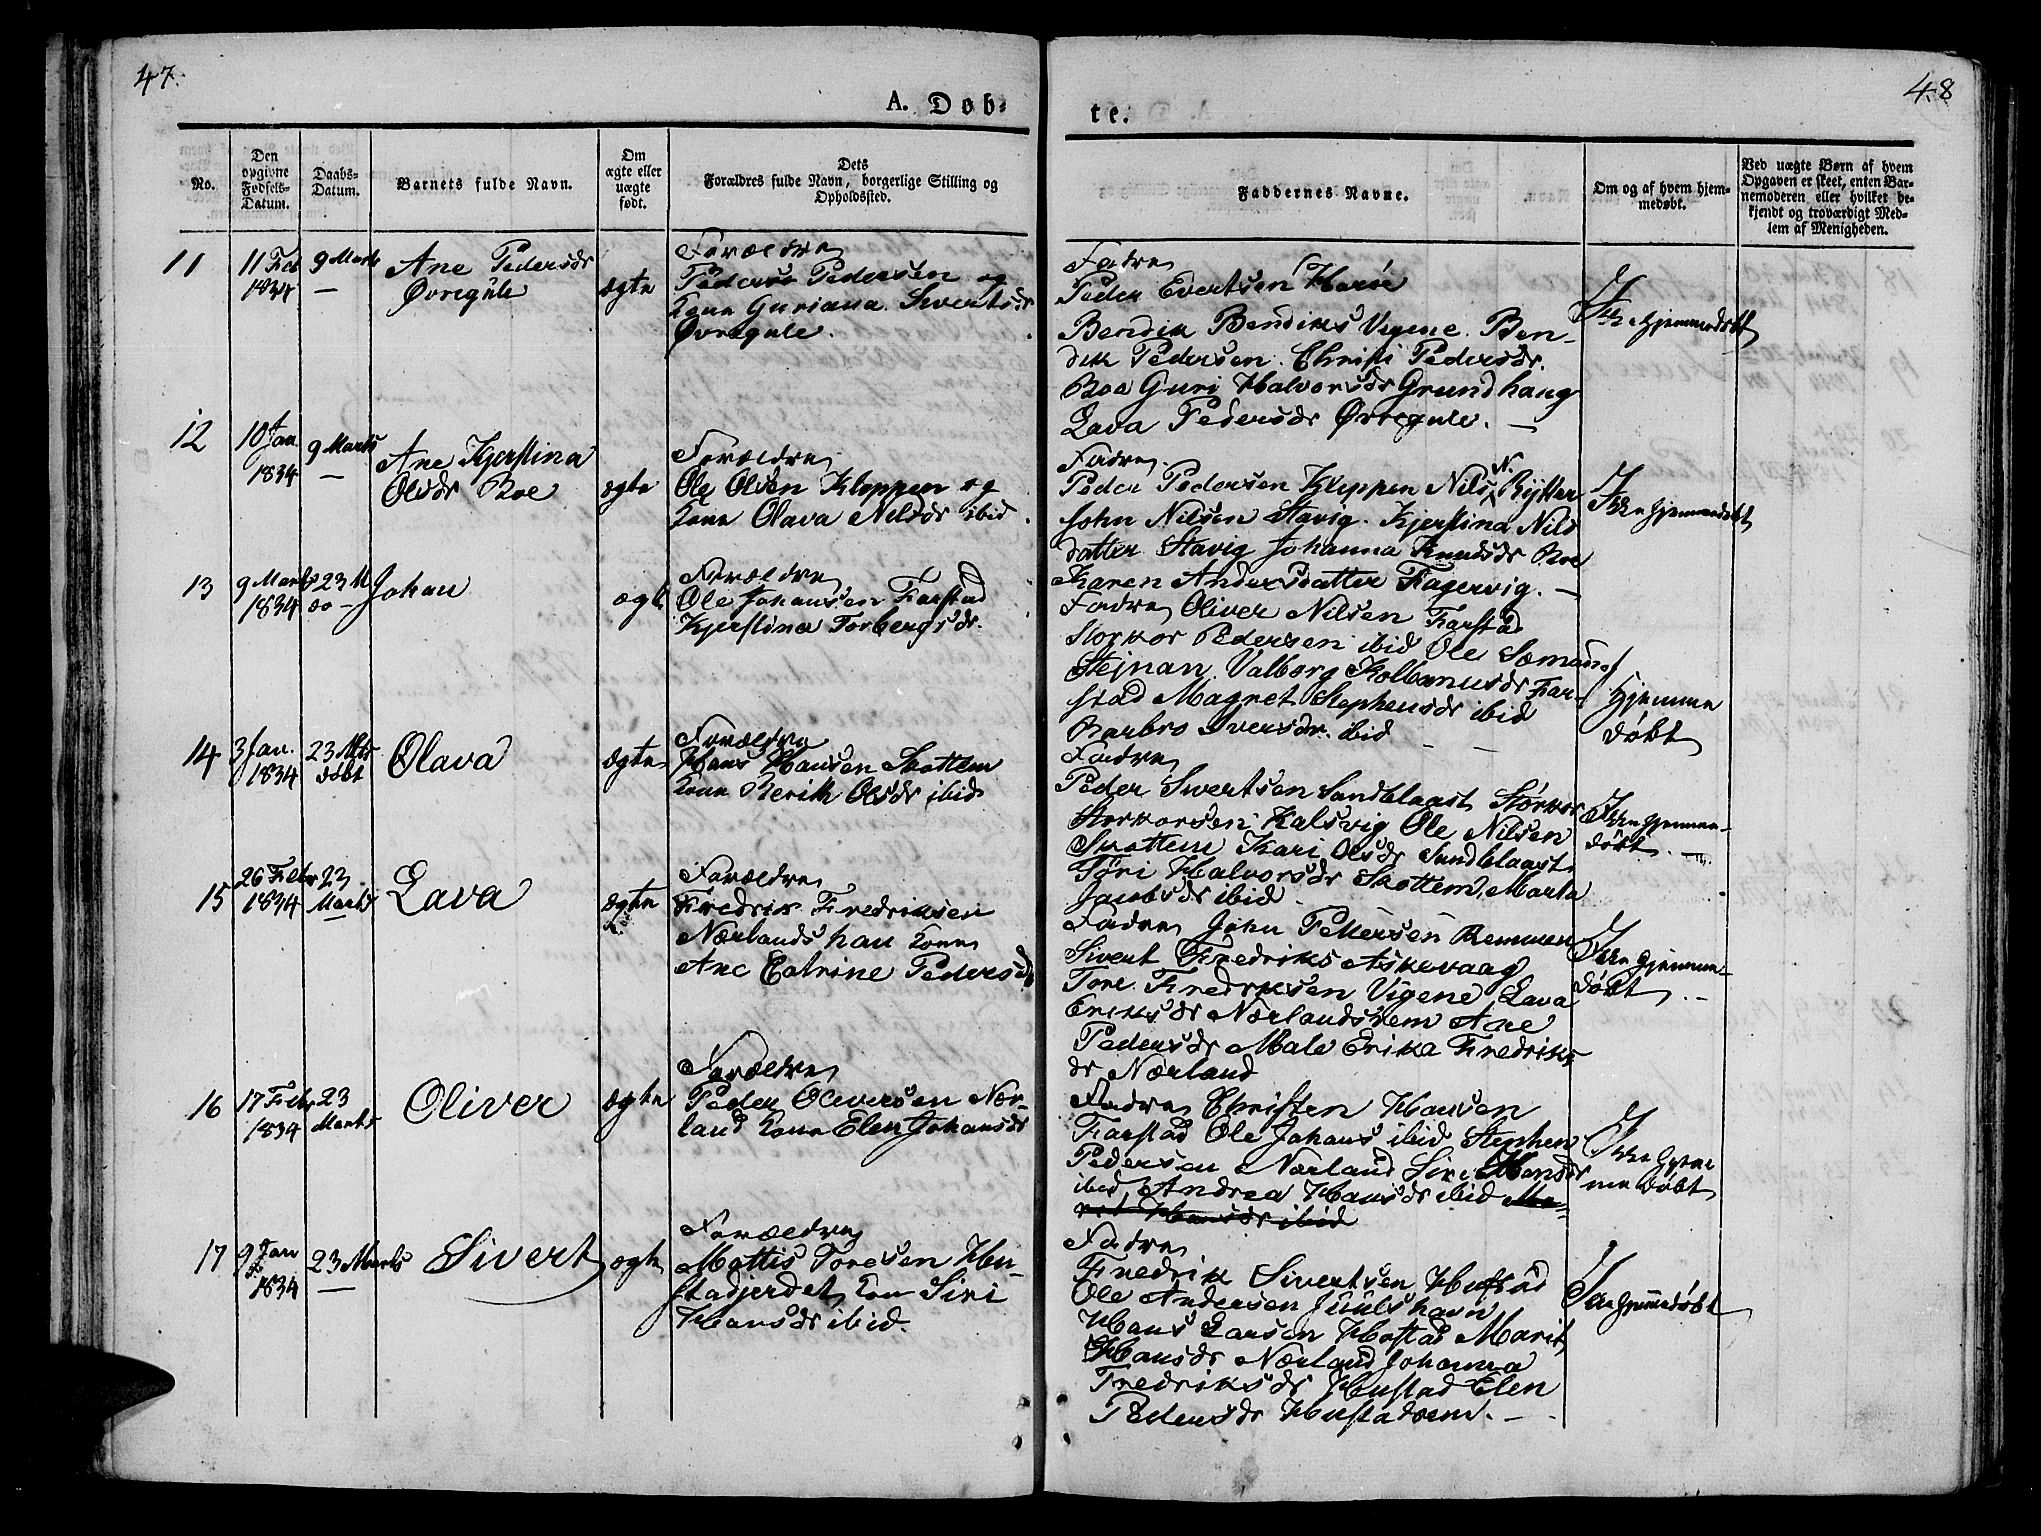 47.
48
A. Døb-
te.
No.
Den opgivne Fødsels-Datum.
Daabs-Datum.
Barnets fulde Navn.
Om ægte eller uægte født.
Dets Forældres fulde Navn, borgerlige Stilling og Opholdssted.
Faddernes Navne.
Om og af hvem hjem-medøbt.
Ved uægte Børn af hvem Opgaven er skeet, enten Bar-nemoderen eller hvilket be-kjendt og troværdigt Med-lem af Menigheden.
11
11 Feb
1834
9 Marts
—
Ane Pedersdr
Øvregule
ægte
Forældre
Peder Pedersen og
Kone Guriana Sivertsdr
Øvregule.
Fadre
Peder Evertsen Harøe
Bendik Bendiks Vigene. Ben-
dik Pedersen. Christi Pedersdr.
Boe Guri Halvorsdr Grundhaug
Lava Pedersdr Øvregule. —
Ikke Hjemmedøbt
12
10 Jan
1834
9 Marts
—
Ane Kjerstina
Olsdr Boe
ægte
Forældre
Ole Olsen Kloppen og
Kone Olava Nilsdr ibid.
Fadre
Peder Pedersen Kloppen Nils N. Rytter
John Nilsen Stavig. Kjerstina Nils
datter Stavig Johanna Knudsdr Boe
Karen Andersdatter Fagervig. —
Ikke hjemmedøbt
13
9 Marts
1834
23 M
do —
Johan
ægte
Forældre
Ole Johansen Farstad
Kjerstina Torbergsdr.
Fadre Oliver Nilsen Farstad
Storkor Pedersen ibid Ole Sæmunds
Stejnan Valborg Kolbenusdr Far-
stad Magret Stephensdr ibid
Barbro Iversdr. ibid — —
Hjemme
døbt
14
3 Jan.
1834
23 Mts
døbt
Olava
ægte
Forældre
Hans Hansen Skottem
Kone Berith Olsdr ibid
Fadre
Peder Sivertsen Sandblaast Storkor
Storkorsen Kalsvig Ole Nilsen
Skottem Kari Olsdr Sandblaast
Tøri Halvorsdr Skottem, Marta
Jacobsdr ibid.
Ikke hjemme-
døbt. —
15
26 Febr
1834
23
Marts
Lava
ægte
Forældre
Fredrik Fredriksen
Nærlands hau Kone
Ane Catrine Pedersdr
Fadre John Pettersen Remmen
Sivert Fredriks Askevaag
Tore Fredriksen Vigene Lava
Eriksdr Nærlandsvem Ane
Pedersdr Male Erika Fredriks
dr Nærland
Ikke hjemme-
døbt. —
16
17 Febr
1834
23
Marts
Oliver
ægte
Forældre
Peder Oliversen Nær-
land Kone Elen Johansdr
Fadre Christen Hansen
Farstad Ole Johans ibid Stephen
Pedersen Nærland Siri Hansdr
ibid Andrea Hansdr ibid Ma-
ret Hansdr ibid
Ikke hjem
me døbt
17
9 Jan
1834
23 Marts
—
Sivert
ægte
Forældre
Mattis Toresen Hu-
stadjerdet, Kone Siri
Hansdr ibid.
Fadre
Fredrik Sivertsen Hustad
Ole Andersen Juulshavn
Hans Larsen Hostad Marit
Hansdr Nærland Johanna
Fredriksdr Hustad Elen
Pedersdr Hustadvem. —
Ikke hjemmedøbt